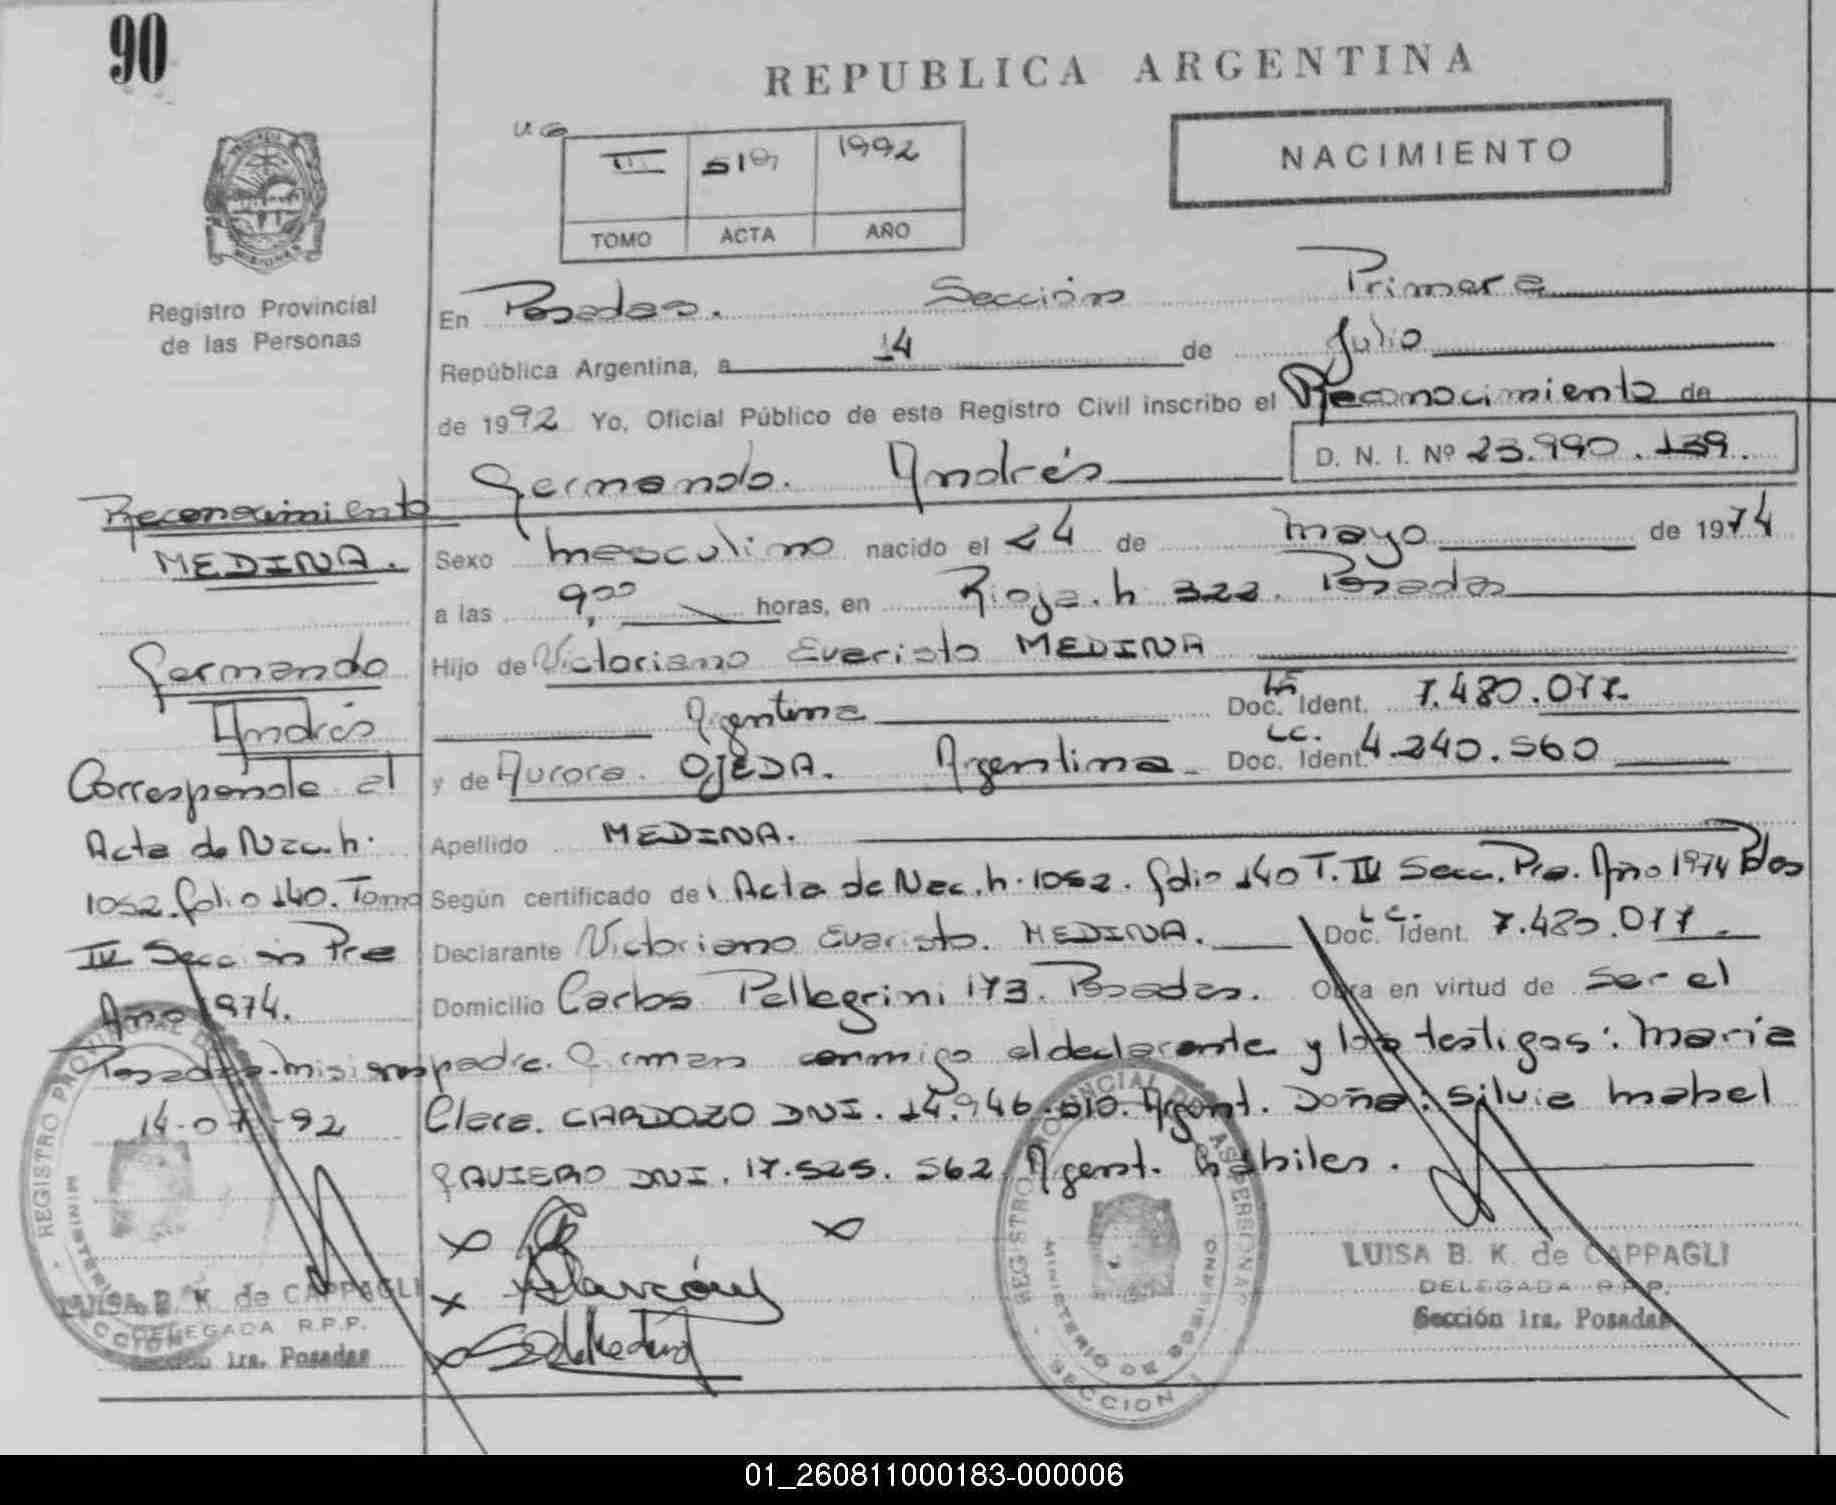 90
REPUBLICA ARGENTINA
NACIMIENTO
III 519 1992
TOMO ACTA AÑO
Registro Provincial
de las Personas
En Posadas. Sección Primera
República Argentina, a 14 de Julio
de 1992 Yo, Oficial Público de este Registro Civil inscribo el Reconocimiento de
D. N. I. Nº 23.990.139.
Germando. Andrés
Sexo masculino nacido el 24 de mayo de 1974
a las 9,00 horas, en Rioja. h 322. Posadas
Hijo de Victoriano Evaristo MEDINA
Argentina Doc. Ident. 7.480.077.
y de Aurora. OJEDA. Argentina Doc. Ident. LC. 4.240.560
Apellido MEDINA.
Según certificado de Acta de Nac. h. 1052. folio 140 T. IV Secc. Pra. Año 1974 Pdas
Declarante Victoriano Evaristo. MEDINA. Doc. Ident. 7.480.077.
Domicilio Carlos Pellegrini 173. Posadas. Obra en virtud de ser el
padre. Firman conmigo el declarante y los testigos: María
Clara. CARDOZO DNI. 14.946.010. Argent. Doña: Silvia Mabel
GAVIERO DNI. 17.525.562 Argent. hábiles.
Reconocimiento
MEDINA.
Germando
Andrés
Corresponde al
Acta de Nac. h.
1052. folio 140. Tomo
IV Sección Pra
Año 1974.
Posadas-Misiones
14-07-92
LUISA B. K. de CAPPAGLI
DELEGADA R.P.P.
Sección 1ra. Posadas
LUISA B. K. de CAPPAGLI
DELEGADA R.P.P.
Sección 1ra. Posadas
REGISTRO PROVINCIAL DE LAS PERSONAS
MINISTERIO DE GOBIERNO
SECCION 1
01_260811000183-000006